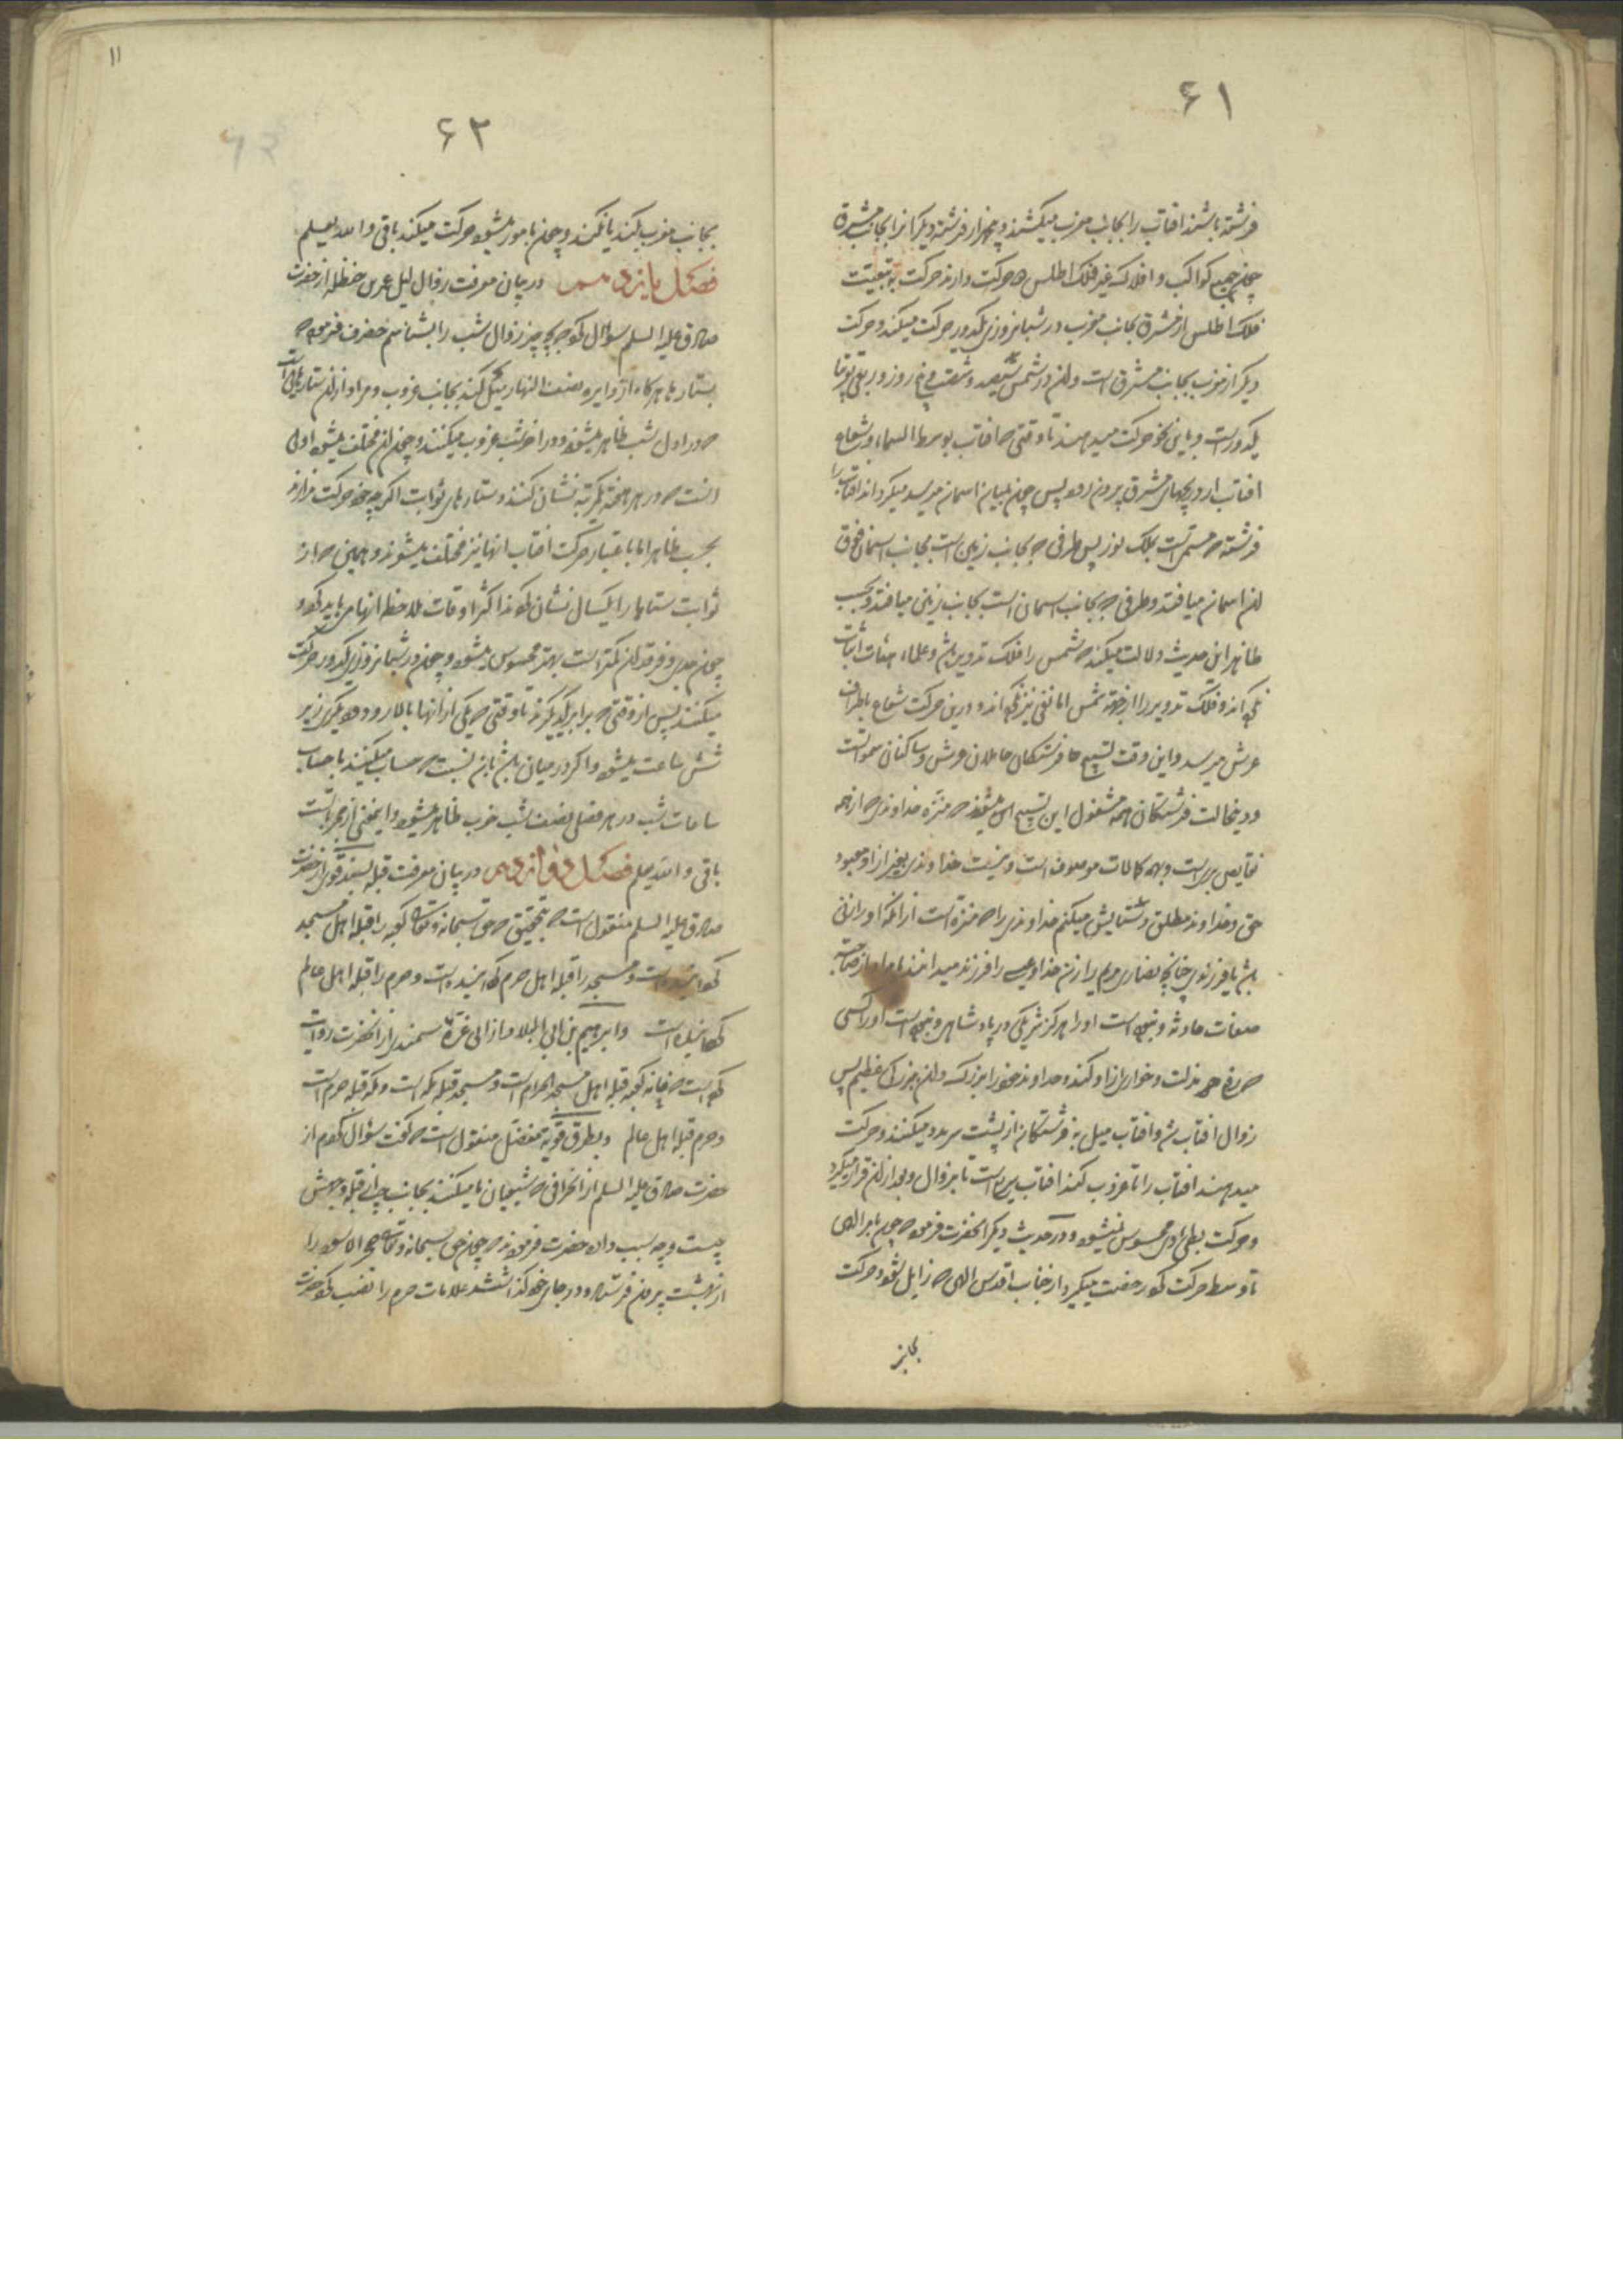 ۶۱
فرشته باشند افتاب را بجانب مغرب میکشند و پنجهزار فرشته دیگر انرا بجانب مشرق
چون جمیع کواکب و افلاک غیر فلک اطلس دو حرکت دارند حرکت بتبعیت
فلک اطلس از مشرق بجانب مغرب در شبانروزی یکدور حرکت میکند و حرکت
دیگر از مغرب بجانب مشرق است و ان در شمس سیصد و شصت و پنج روز و ربعی تقریبا
یکدورست و باین نحو حرکت میدهند تا وقتی که افتاب بوسط السماء و شعاع
افتاب از دریچهای مشرق بیرون رود پس چون بمیان اسمان میرسد میگرداند افتاب را
فرشته که مسمی است بملک نور پس طرفی که بجانب زمین است بجانب اسمان فوق
ان اسمان میافتد و طرفی که بجانب اسمان است بجانب زمین میافتد و بحسب
ظاهر این حدیث دلالت میکند که شمس را فلک تدویر باشد و علماء هیئات اثبات
نکرده اند فلک تدویر را از جهة شمس اما نفی نیز نکرده اند و درین حرکت شعاع باطراف
عرش میرسد و این وقت تسبیح فرشتگان حاملان عرش و ساکنان سموات است
و درینحالت فرشتگان همه مشغول این تسبیح میشوند که منزه خداوندی که از همه
نقایص بری است و بهمه کمالات موصوف است و نیست خداوندی بغیر از او معبود
حق و خداوند مطلق و ستایش میکنم خداوندی را که منزه است از انکه او را زنی
باشد یا فرزندی چنانچه نصاری مریم را زن خدا و عیسی را فرزند میدانند
صفات حادثه و نبوده است او را هرگز شریکی در پادشاهی و نبوده است او را کسی
که دفع مذلت و خواری ازو کند و خداوند خود را بزرگ دان بزرگی عظیم پس
زوال افتاب شد و افتاب میل بـ فرشتگان از پشت سر مدد میکنند و حرکت
میدهند افتاب را تا غروب کند افتاب تا بزوال و بعد از ان قرار میگیرد
و حرکت بطی محسوس نمیشود و در حدیث دیگر انحضرت فرمود که چون بامر الهی
تا وسط حرکت کرد رخصت میگیرد از جناب اقدس الهی که زایل شود و حرکت
بجانب
۱۱
۶۲
بجانب مغرب بکند یا نکند و چون مامور میشود حرکت میکند باقی والله یعلم
فصل یازدهم در بیان معرفت زوال لیل عمر بن حنظله از حضرت
صادق علیه السلم سؤال کرد که بچه چیز زوال شب را بشناسم حضرت فرمود که
بستارها هر گاه از دایره نصف النهار میل کنند بجانب غروب و مراد از ان ستارهائی است
که در اول شب ظاهر میشوند و در اخر شب غروب میکنند و چون ان مختلف میشود اولی
انست که در هر هفته یکمرتبه نشان کنند و ستارهای ثوابت اگر چه خود حرکت ندارند
بحسب ظاهر اما باعتبار حرکت افتاب انها نیز مختلف میشوند و همین که از
ثوابت ستارها را یکسال نشان کردند اکثر اوقات ملاحظه انها می باید کرد و
چون جدی و فرقدان نمیتر است بهتر محسوس میشود و چون در شبانروزی یکدور حرکت
میکنند پس از وقتی که برابر یکدیگرند تا وقتی که یکی از انها بالا رود و دیگری زیر
شش ساعت میشود و اگر در میان باشد باین نسبت که حساب میکنند با حساب
ساعات شب در هر فصلی نصف شب خوب ظاهر میشود و اینمعنی از مجربات است
باقی والله یعلم فصل دوازدهم در بیان معرفت قبله بسند قوی از حضرت
صادق علیه السلم منقول است که بتحقیق که حق سبحانه و تعالی کعبه را قبله اهل مسجد
کردانیده است و مسجد را قبله اهل حرم کردانیده است و حرم را قبله اهل عالم
کردانیده است و ابرهیم بن ابی البلاد از ابی غره بسندی از انحضرت روایت
کرده است که خانه کعبه قبله اهل مسجد الحرام است و مسجد قبله مکه است و مکه قبله حرم است
و حرم قبله اهل عالم و بطرق قویه از مفضل منقول است که گفت سؤال کردم از
حضرت صادق علیه السلم از انحرافی که شیعیان ما میکنند بجانب چپ از قبله وجهش
چیست و چه سبب دارد حضرت فرمودند که چون حق سبحانه و تعالی حجر الاسود را
از بهشت بیرون فرستاد و در جای خود گذاشتند علامات حرم را نصب کرد حضرت